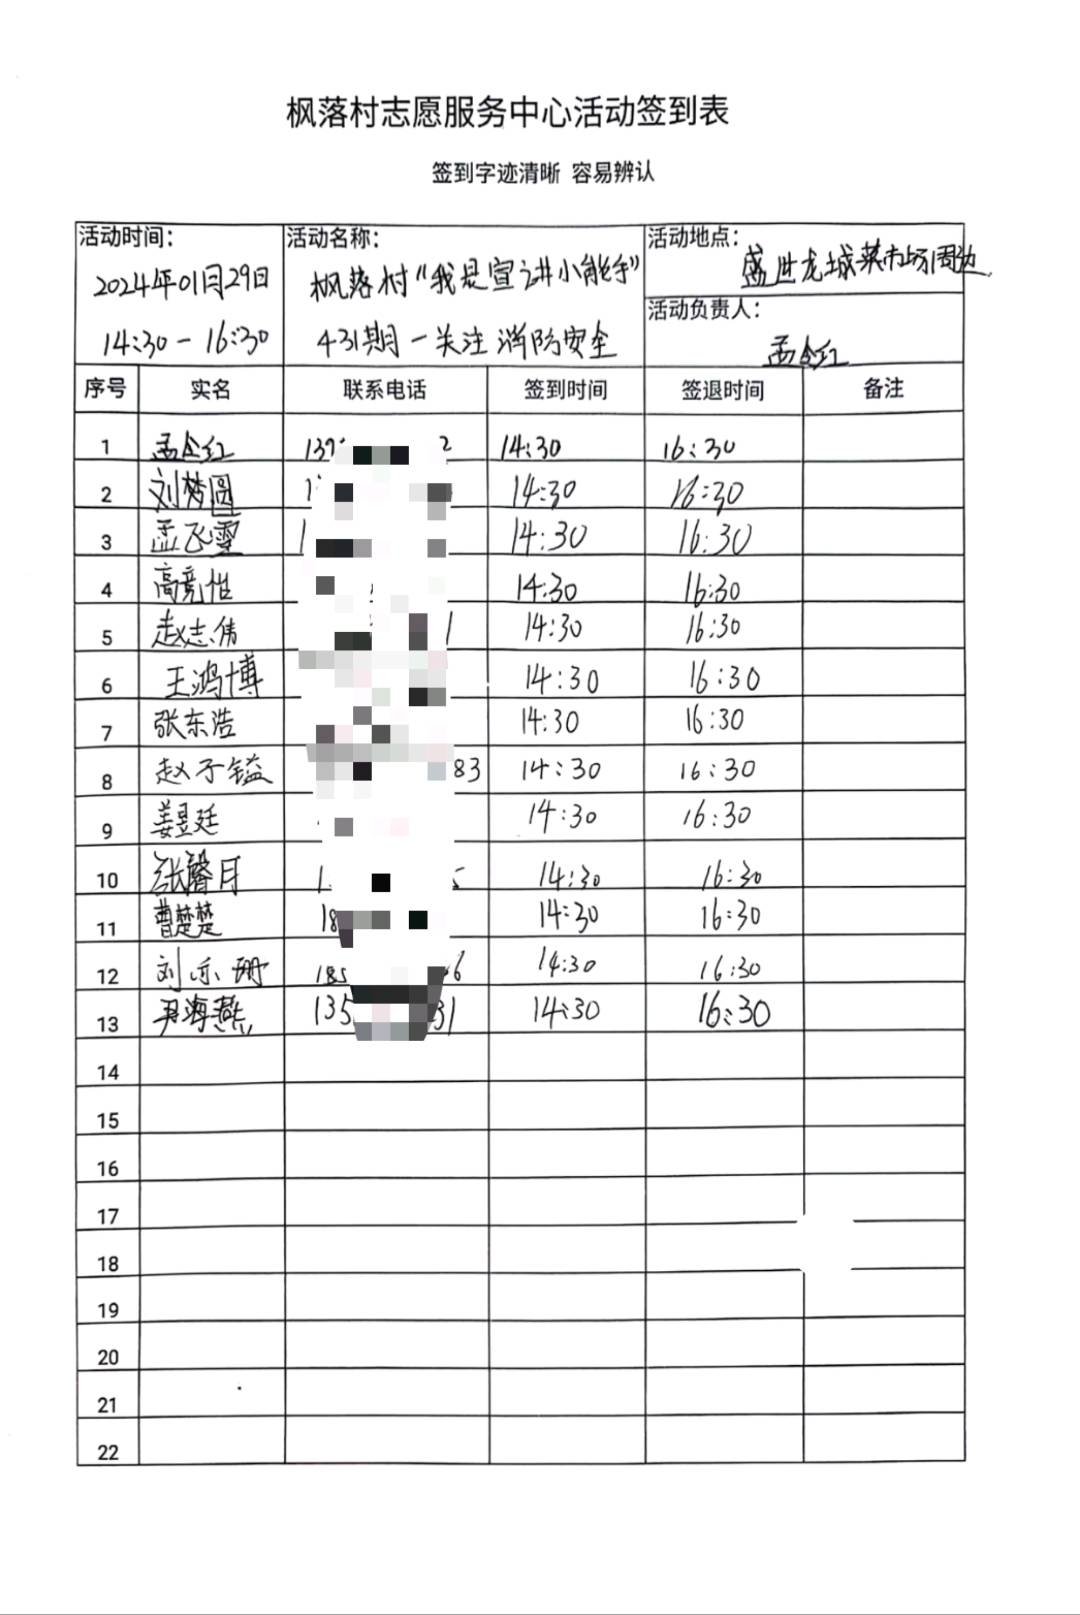 枫落村志愿服务中心活动签到表
签到字迹清晰 容易辨认
活动时间： 活动名称： 活动地点：
2024年01月29日 枫落村“我是宣讲小能手” 盛世龙城菜市场周边
活动负责人：
14:30-16:30 431期-关注消防安全 孟令红
序号 实名 联系电话 签到时间 签退时间 备注
1 孟令红 139 2 14:30 16:30
2 刘梦圆 1 14:30 16:30
3 孟飞雪 1 14:30 16:30
4 高竞性 14:30 16:30
5 赵志伟 1 14:30 16:30
6 王鸿博 14:30 16:30
7 张东浩 14:30 16:30
8 赵子镒 83 14:30 16:30
9 姜昱廷 14:30 16:30
10 张馨月 1 5 14:30 16:30
11 曹楚楚 18 14:30 16:30
12 刘亦珊 185 6 14:30 16:30
13 尹海燕 135 31 14:30 16:30
14
15
16
17
18
19
20
21
22